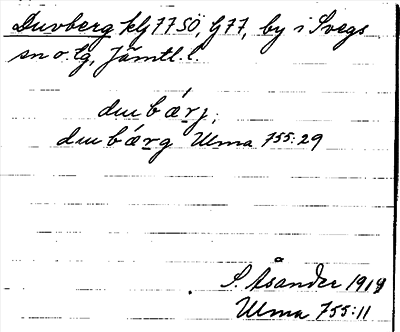 Duvberg klg 77 SÖ, G77, by i Svegs
sn o. tg, Jämtl. l.
duubǽrj;
duubǽrg Ulma 755:29
S. Åsander 1918
Ulma 755:11